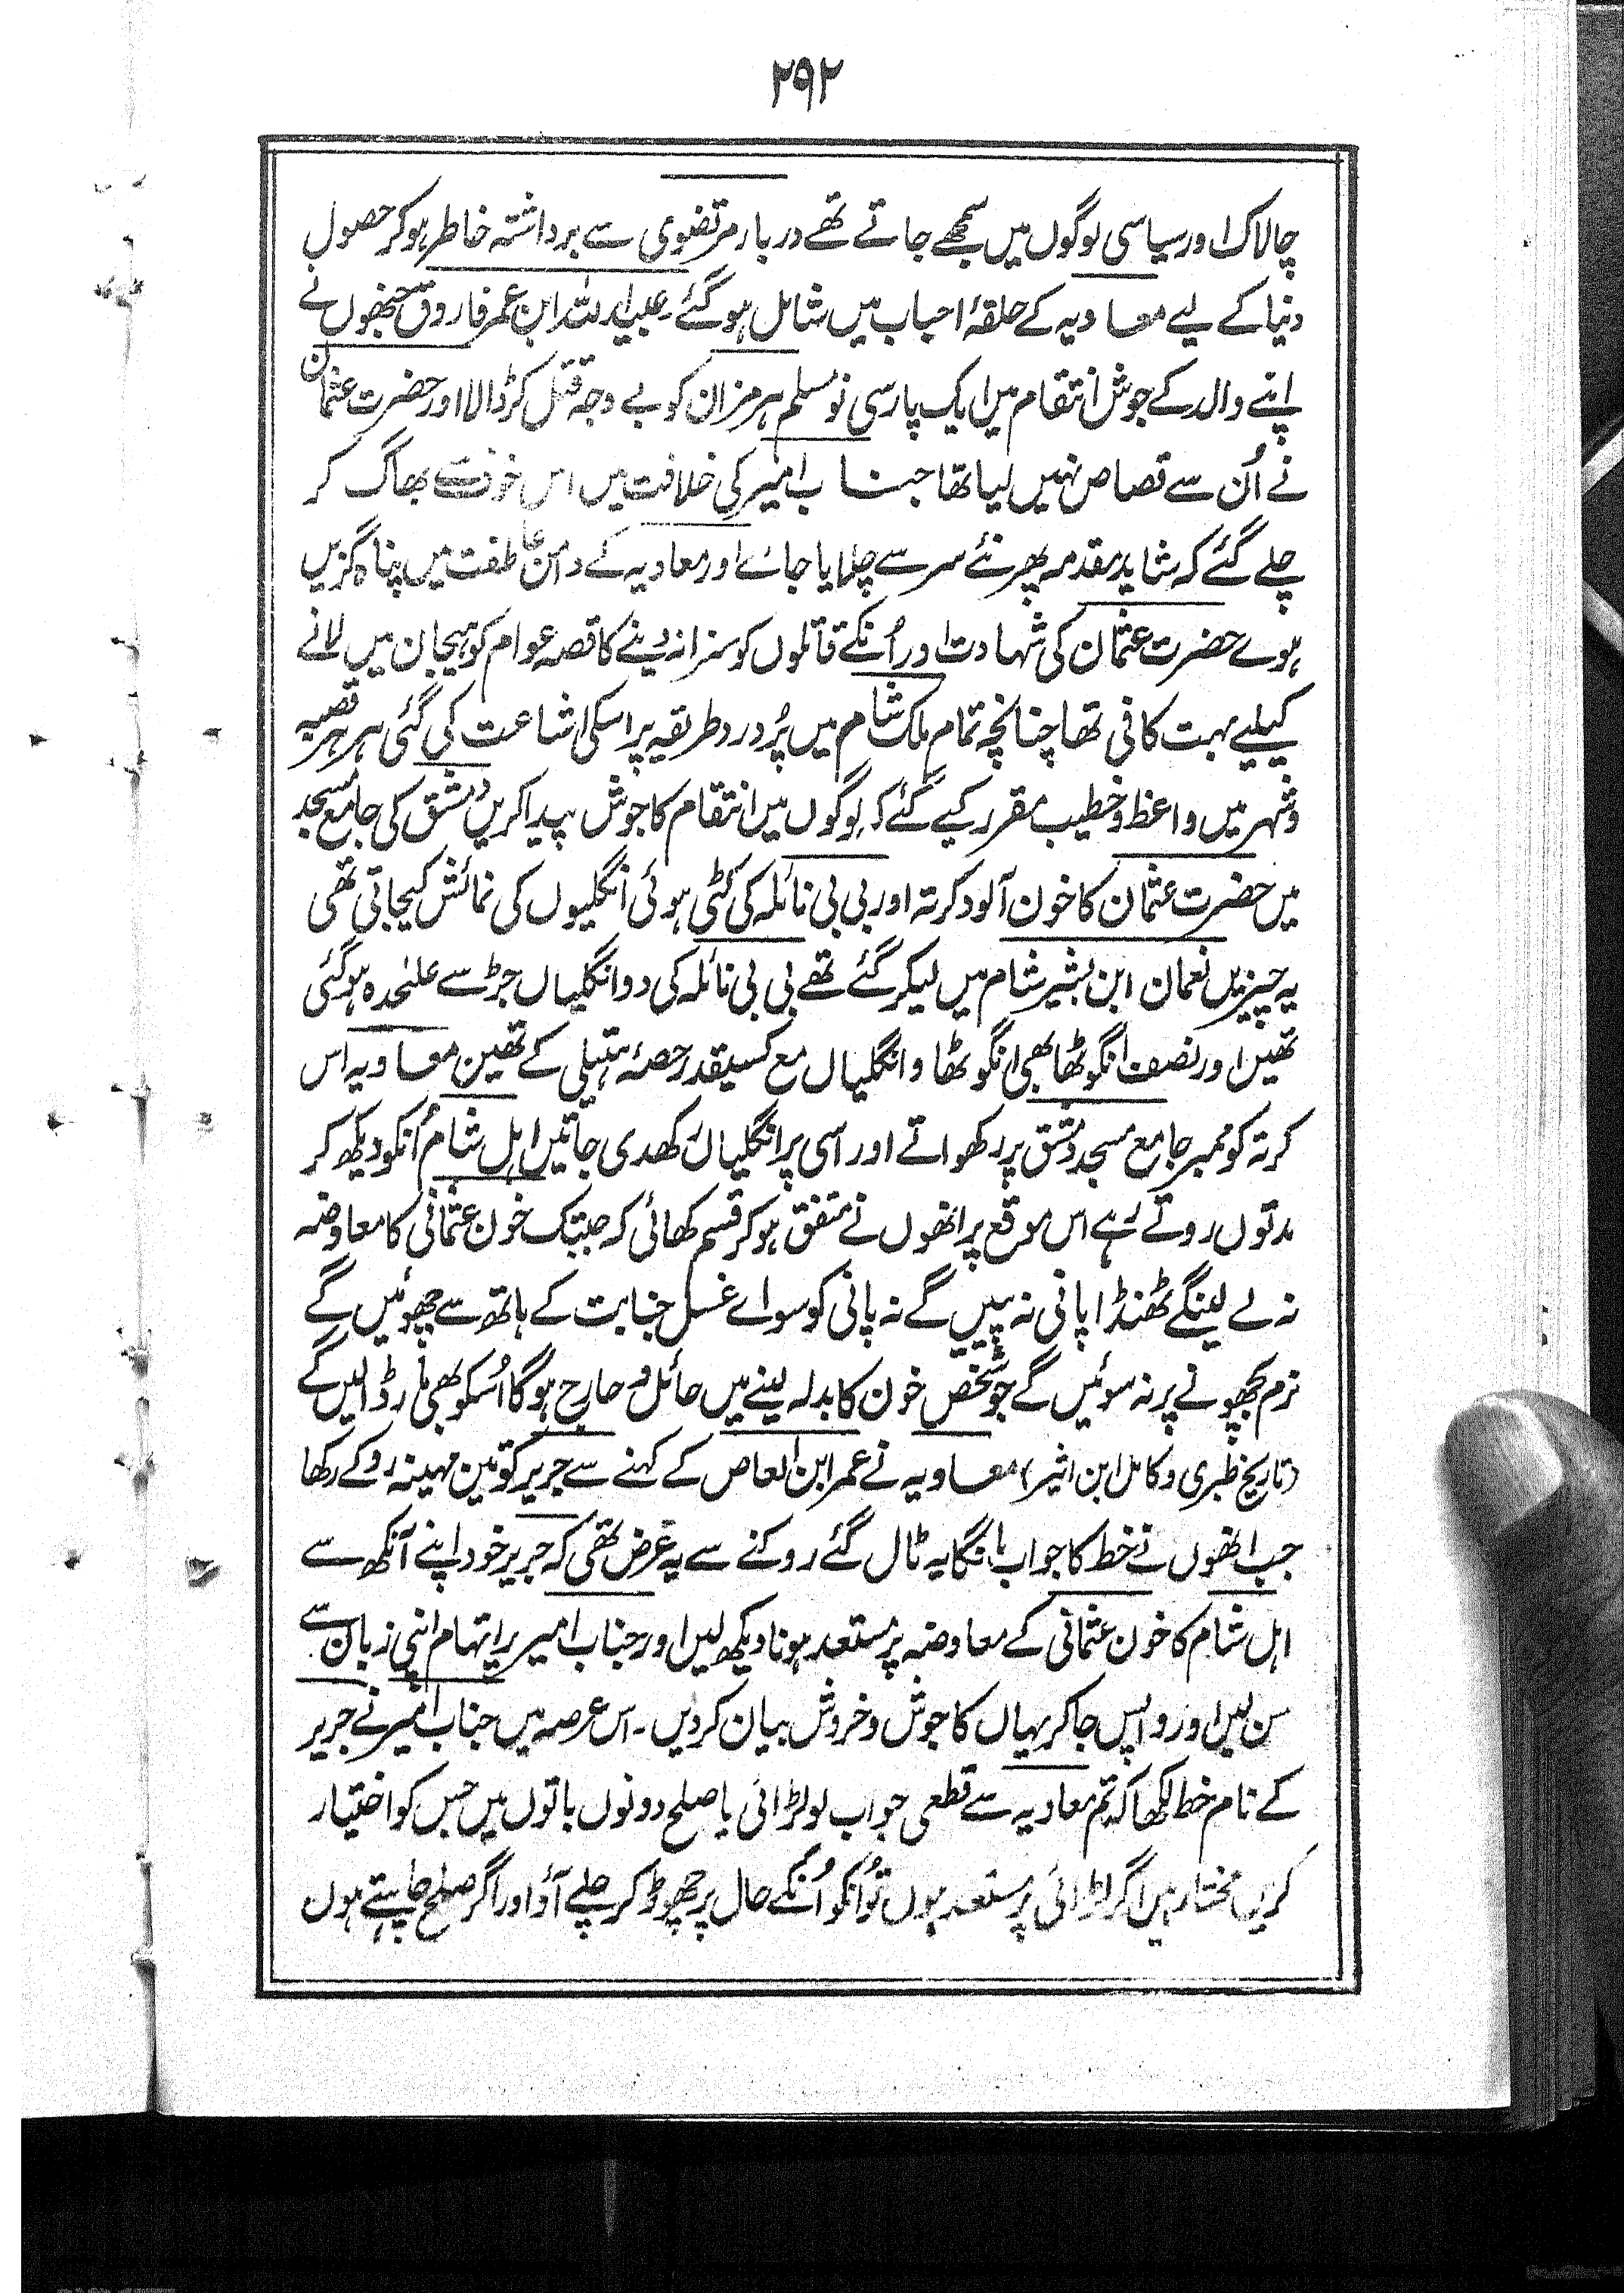 ۲۹۲
چالاک اور سیاسی لوگوں میں سمجھے جاتے تھے دربار مرتضوی سے برداشتہ خاطر ہو کر حصول
دنیا کے لیے معاویہ کے حلقۂ احباب میں شامل ہو گئے۔ عبیداللہ ابن عمر فاروق جنھوں نے
اپنے والد کے جوش انتقام میں ایک پارسی نومسلم ہرمزان کو بے وجہ قتل کر ڈالا اور حضرت عثمان
نے اُن سے قصاص نہیں لیا تھا جناب امیر کی خلافت میں اس خوف سے بھاگ کر
چلے گئے کہ شاید مقدمہ پھر نئے سر سے چلایا جائے اور معاویہ کے دامن عاطفت میں پناہ گزیں
ہوے حضرت عثمان کی شہادت اور اُنکے قاتلوں کو سزا نہ دینے کا قصہ عوام کو ہیجان میں لانے
کیلیے بہت کافی تھا چنانچہ تمام ملک شام میں پُر درد طریقہ پر اسکی اشاعت کی گئی ہر ہر قصبہ
و شہر میں واعظ و خطیب مقرر کیے گئے کہ لوگوں میں انتقام کا جوش پیدا کریں دمشق کی جامع مسجد
میں حضرت عثمان کا خون آلود کرتہ اور بی بی نائلہ کی کٹی ہوئی انگلیوں کی نمائش کیجاتی تھی
یہ چیزیں نعمان ابن بشیر شام میں لیکر گئے تھے بی بی نائلہ کی دو انگلیاں جڑ سے علٰحدہ ہو گئی
تھیں اور نصف انگوٹھا بھی انگوٹھا و انگلیاں مع کسیقدر حصۂ ہتیلی کے تھین معاویہ اس
کرتہ کو ممبر جامع مسجد دمشق پر رکھواتے اور اسی پر انگلیاں رکھدی جاتیں اہل شام اُنکو دیکھ کر
مدتوں روتے رہے اس موقع پر انھوں نے متفق ہو کر قسم کھائی کہ جبتک خون عثمانی کا معاوضہ
نہ لے لینگے ٹھنڈا پانی نہ پییں گے نہ پانی کو سواے غسل جنابت کے ہاتھ سے چھوئیں گے
نرم بچھونے پر نہ سوئیں گے جو شخص خون کا بدلہ لینے میں حائل و حارج ہوگا اُسکو بھی مار ڈالیں گے
(تاریخ طبری و کامل ابن اثیر) معاویہ نے عمر ابن العاص کے کہنے سے جریر کو تین مہینہ روکے رکھا
جب انھوں نے خط کا جواب مانگا یہ ٹال گئے روکنے سے یہ غرض تھی کہ جریر خود اپنے آنکھ سے
اہل شام کا خون عثمانی کے معاوضہ پر مستعد ہونا دیکھ لیں اور جناب امیر پر اتہام اپنی زبان سے
سن لیں اور واپس جا کر یہاں کا جوش و خروش بیان کر دیں۔ اس عرصہ میں جناب امیر نے جریر
کے نام خط لکھا کہ تم معاویہ سے قطعی جواب لو لڑائی یا صلح دونوں باتوں میں جس کو اختیار
کریں مختار ہیں اگر لڑائی پر مستعد ہوں تو اُنکو اُنکے حال پر چھوڑ کر چلے آؤ اور اگر صلح چاہتے ہوں